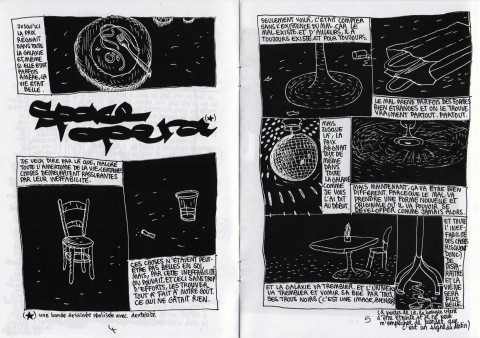 JUSQU'ICI
LA PAIX
RÉGNAIT
DANS TOUTE
LA GALAXIE
ET MÊME
SI ELLE ÉTAIT
PARFOIS
AMÈRE, LA
VIE ÉTAIT
BELLE.
SPACE
OPERA (★)
JE VEUX DIRE PAR LÀ QUE, MALGRÉ
TOUTE L'AMERTUME DE LA VIE, CERTAINES
CHOSES DEMEURAIENT RASSURANTES
PAR LEUR INEFFABILITÉ.
CES CHOSES N'ÉTAIENT PEUT-
ÊTRE PAS BELLES EN SOI,
MAIS, PAR CETTE INEFFABILITÉ
ON POUVAIT, ET CECI SANS TROP
D'EFFORTS, LES TROUVER
TOUT À FAIT À NOTRE GOÛT.
CE QUI NE GÂTAIT RIEN...
(★) une bande dessinée réalisée avec
4
SEULEMENT VOILÀ, C'ÉTAIT COMPTER
SANS L'EXISTENCE DU MAL. CAR LE
MAL EXISTE. ET D'AILLEURS, IL A
TOUJOURS EXISTÉ. ET POUR TOUJOURS.
LE MAL PREND PARFOIS DES FORMES
BIEN ÉTRANGES ET ON LE TROUVE
VRAIMENT PARTOUT. PARTOUT.
MAIS
JUSQUE
LÀ, LA
PAIX
RÉGNAIT
TOUT DE
MÊME
DANS
TOUTE
LA GALAXIE
COMME
JE VOUS
L'AI DIT
AU DÉBUT.
MAIS MAINTENANT, ÇA VA ÊTRE BIEN
DIFFÉRENT. PARCE QUE LE MAL VA
PRENDRE UNE FORME NOUVELLE ET
ORIGINALE OÙ IL VA POUVOIR SE
DÉVELOPPER COMME JAMAIS ALORS.
ET TOUTE
L'INEF-
FABILITÉ
DES CHOSES
RISQUENT
DONC
DE
DISPA-
RAÎTRE
ET LA
VIE NE
SERA
PLUS
BELLE.
ET LA GALAXIE VA TREMBLER. ET L'UNIVERS
VA TREMBLER ET VOMIR SA BILE PAR TOUS
SES TROUS NOIRS (C'EST UNE IMAGE, BIEN SÛR)
5
(à partir de là, la bougie vient
d'être éteinte et je ne peux
m'empêcher de penser que
c'est un signe du destin)